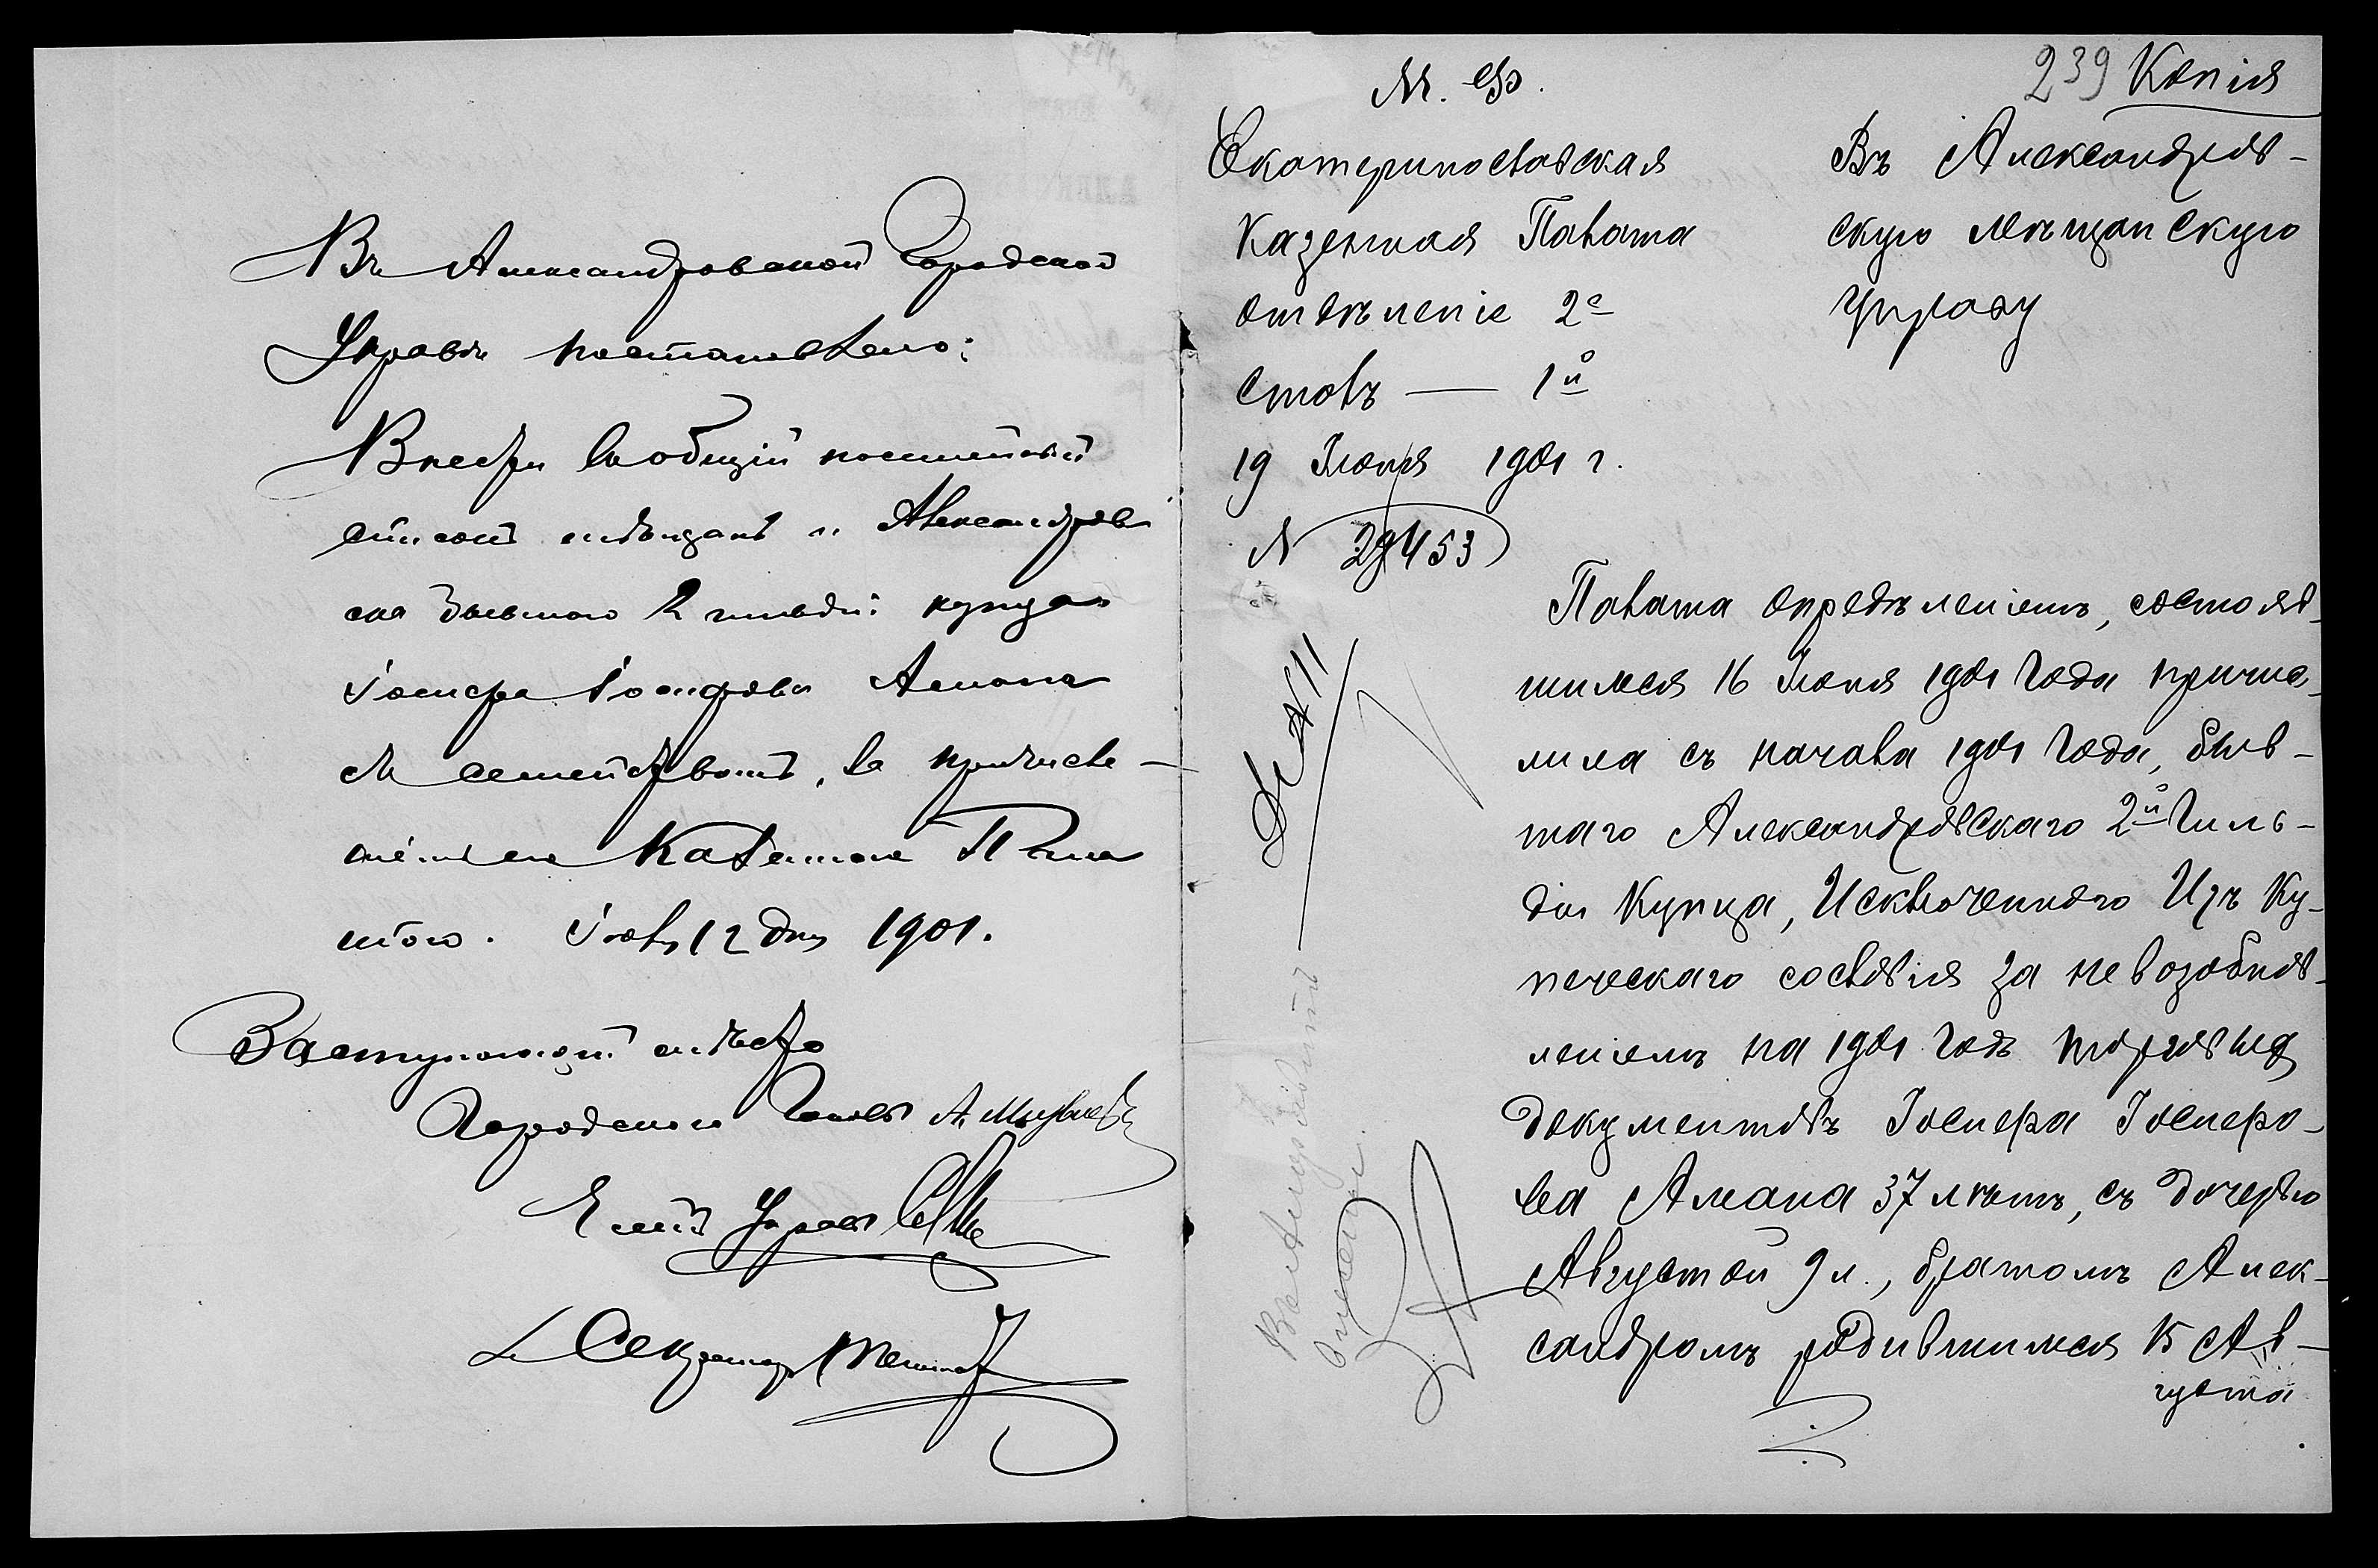 Въ Александровской Городской
Управѣ постановлено:
Внести въ общій посемейный
списокъ мѣщанъ г. Александров
ска бывшаго 2 гильдіи купца
Іоспера Іосперова Амана
съ семействомъ, въ причисле-
ніемъ его Казенною Пала
тою. Іюля 12 дня 1901.
Заступающій мѣсто
Городского Головы А.
Членъ Управы
Секретарь
239 Копія
М. Ф.
Екатеринославская
Казенная Палата
отдѣленіе 2е
столъ — 1й
19 Іюня 1901 г.
N 29453
Въ Александров-
скую мѣщанскую
управу
Палата опредѣленіемъ, состояв-
шимся 16 Іюня 1901 года причис-
лила съ начала 1901 года, быв-
шаго Александровскаго 2й Гиль-
діи Купца, Исключеннаго Изъ Ку-
печескаго сословія за невозобнов-
леніемъ на 1901 годъ торговыхъ
документовъ Іоспера Іосперо-
ва Амана 37 лѣтъ, съ дочерью
Августой 9 л., братомъ Алек-
сандромъ родившимся 15 Ав-
густа